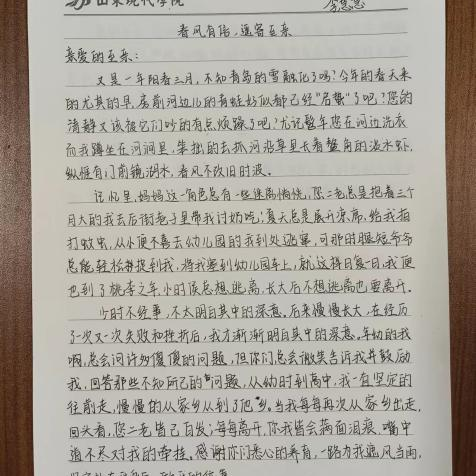 山东现代学院
李思思
春风有信，遥寄至亲
亲爱的至亲：
又是一年阳春三月，不知青岛的雪融化了吗？今年的春天来
的尤其的早，房前河边儿的青蛙好似都已经"启蛰"了吧？您的
清静又该被它们吵的有点烦躁了吧？尤记馥年您在河边洗衣
而我蹲在河涧里，笨拙的去抓河沿草里长着蟹角的淡水虾，
纵惟有门前镜湖水，春风不改旧时波。
记忆里，妈妈这一角色总有一些迷离惝恍，您二老总是抱着三个
月大的我去后街巷子里带我讨奶吃；夏天总是展开凉席，给我拍
打蚊虫，从小便不喜去幼儿园的我到处逃窜，可那时腿短爷爷
总能轻松找到我，将我塞到幼儿园车上，就这样日复一日，我便
也到了桃李之年，小时候总想逃离，长大后不想逃离也要离开。
少时不经事，不太明白其中的深意。后来慢慢长大，在经历
了一次又一次失败和挫折后，我才渐渐明白其中的深意。年幼的我
啊，总会问许多傻傻的问题，但你们总会微笑告诉我并鼓励
我，回答那些不知所已的问题，从幼时到高中，我一直坚定的
往前走，慢慢的从家乡走到了他乡。当我每每再次从家乡出走，
回头看，您二老皆已白发；每每离开，你我皆会满面泪痕，嘴中
道不尽对我的牵挂。感谢你们悉心的养育，一路为我遮风当雨，